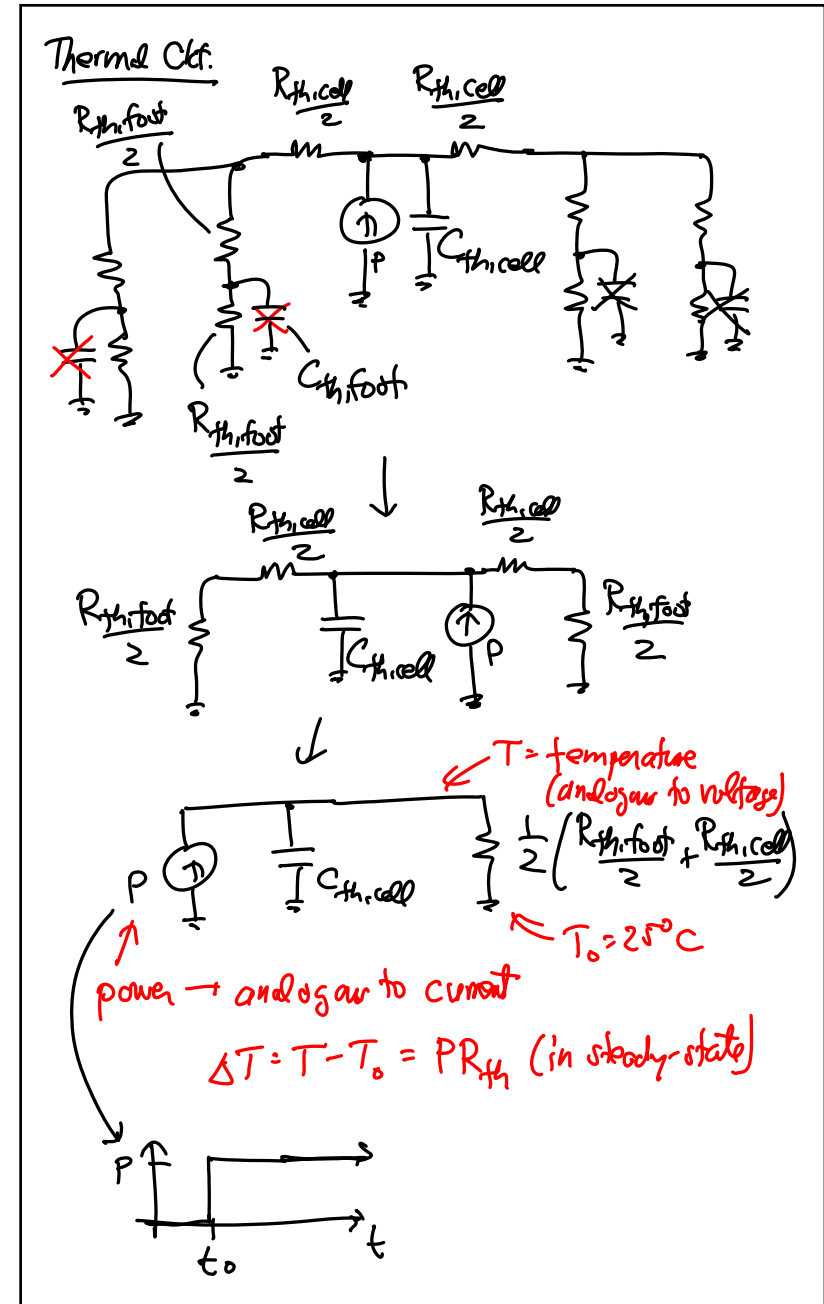 Thermal Ckt.
R_th,cell/2
R_th,cell/2
R_th,foot/2
P
C_th,cell
C_th,foot
R_th,foot/2
R_th,cell/2
R_th,cell/2
R_th,foot/2
C_th,cell
P
R_th,foot/2
T = temperature
(analogous to voltage)
P
C_th,cell
1/2 (R_th,foot/2 + R_th,cell/2)
T₀ = 25°C
power → analogous to current
ΔT = T - T₀ = PR_th (in steady-state)
P
t₀
t